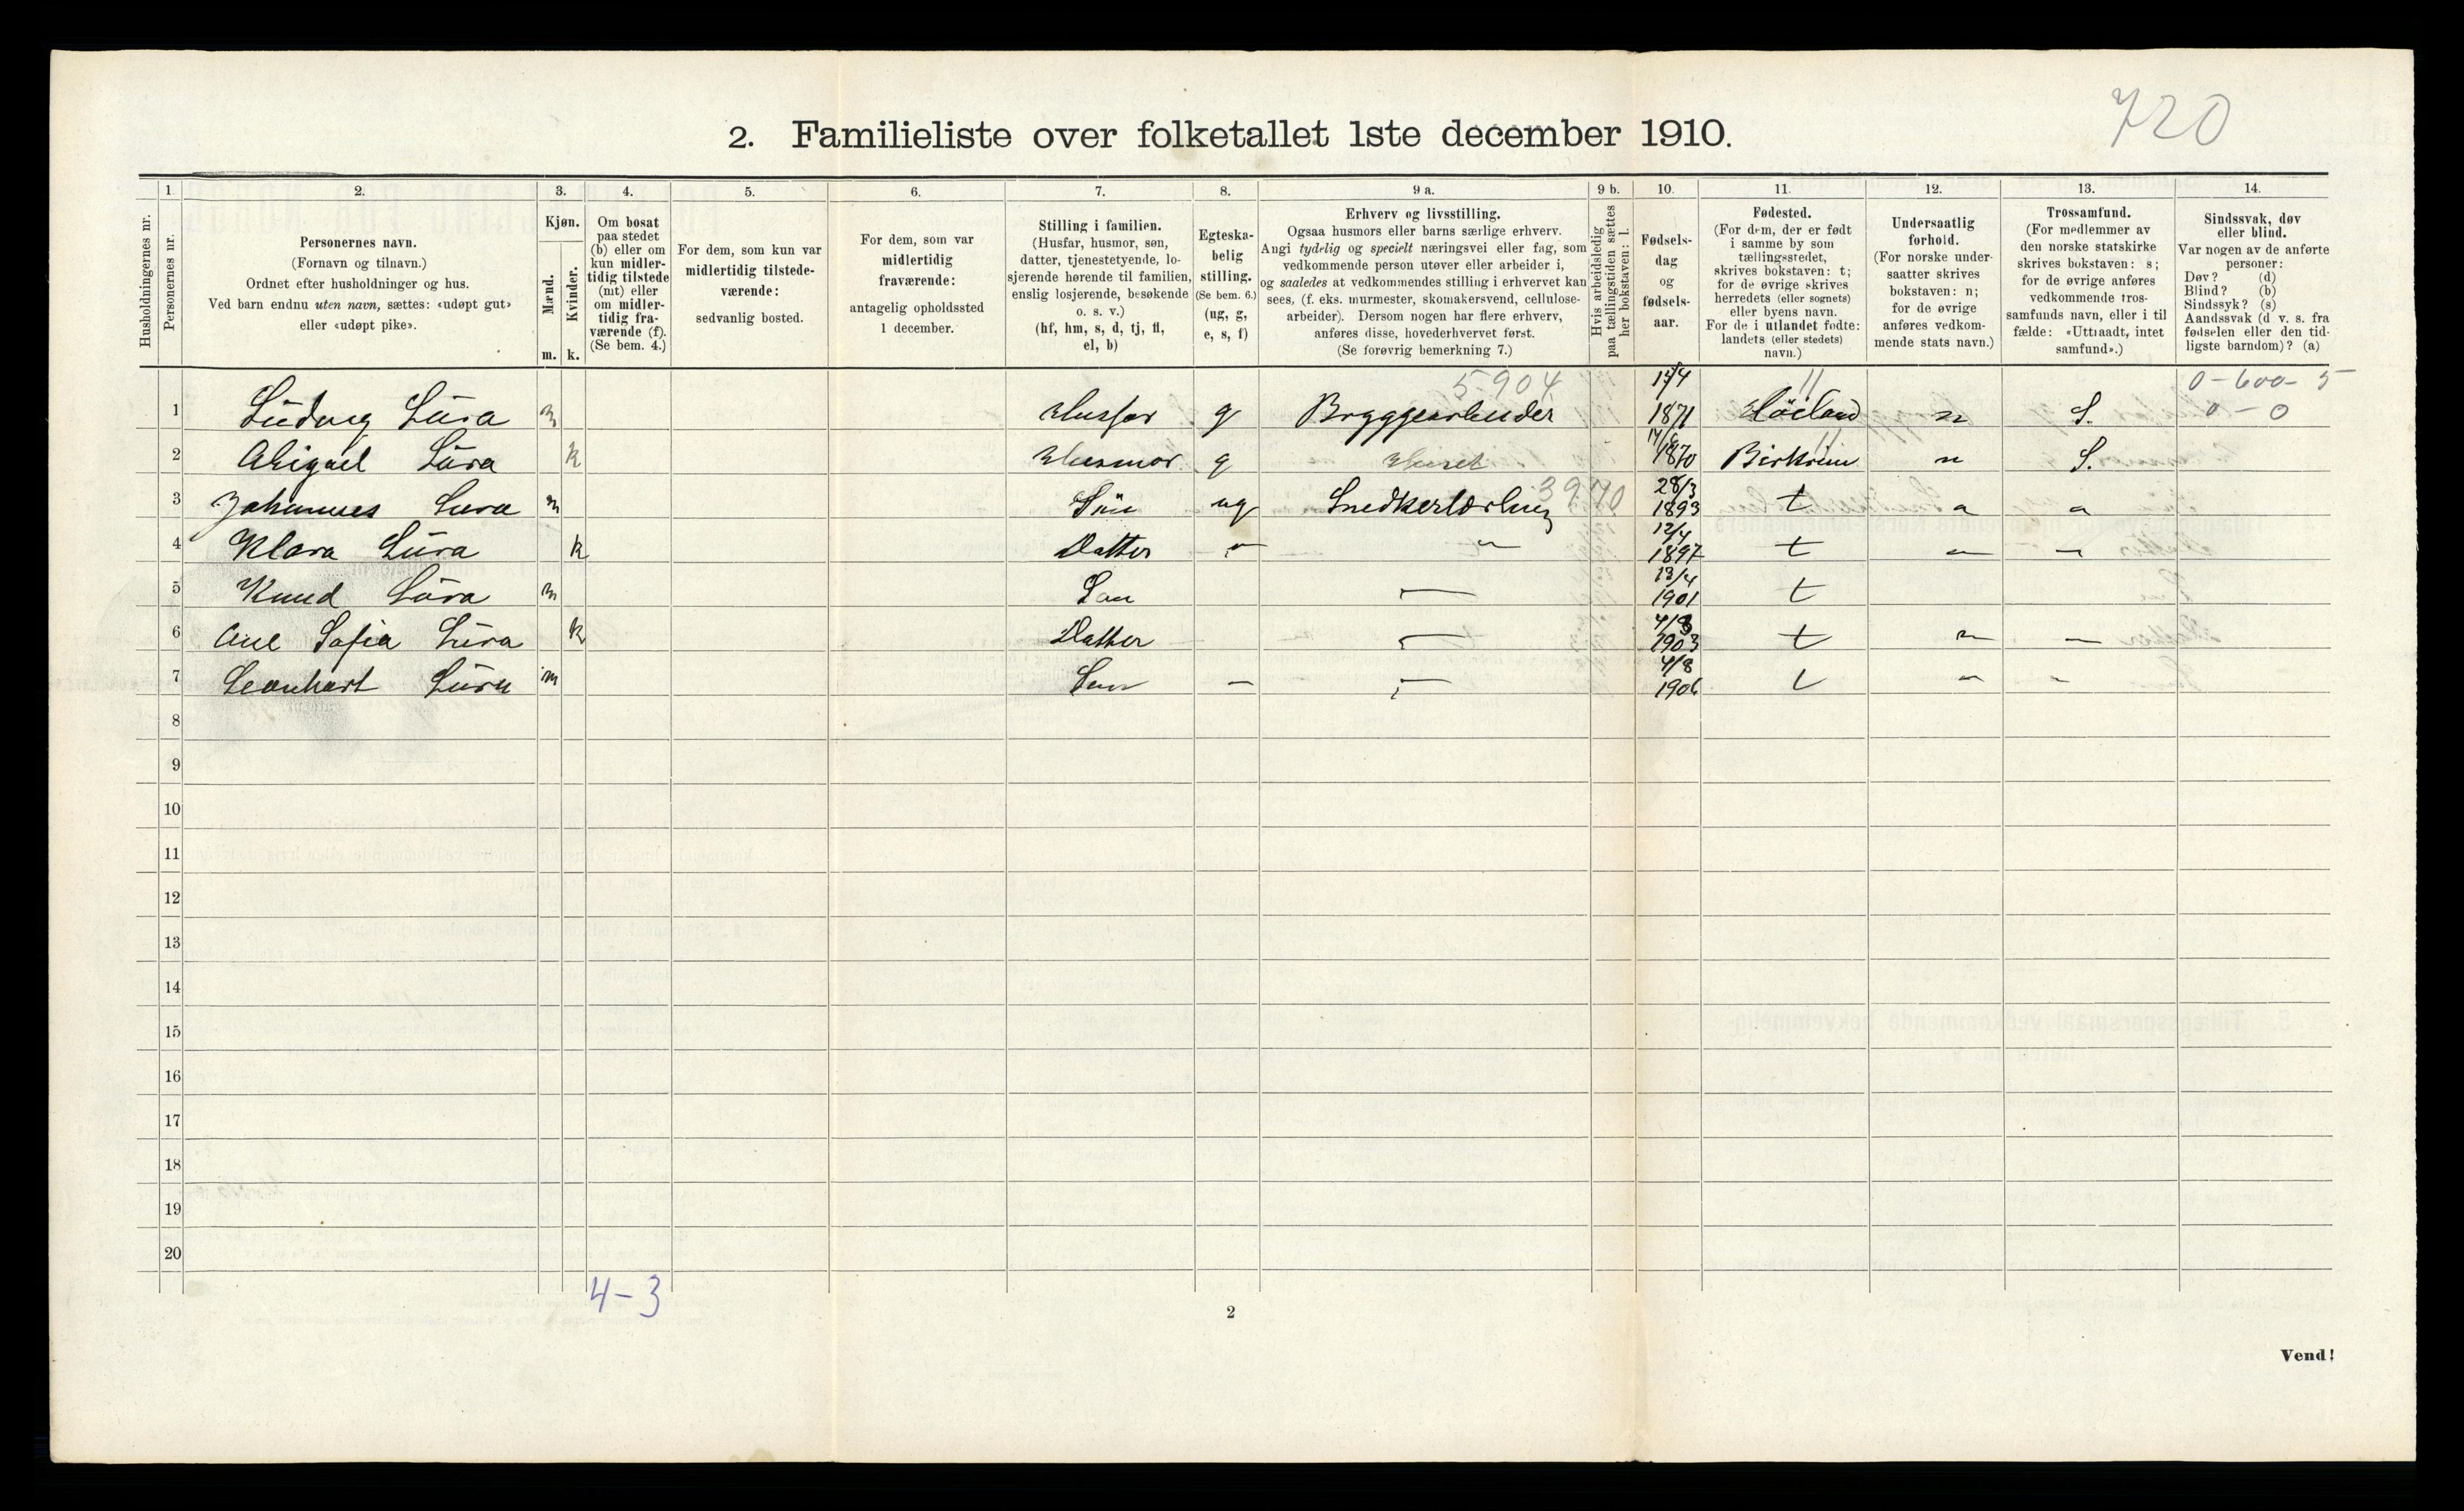 720
2. Familieliste over folketallet 1ste december 1910.
1 2. 3. 4. 5. 6. 7. 8. 9 a. 9 b. 10. 11. 12. 13. 14.
Husholdningernes nr.
Personernes nr.
Personernes navn.
(Fornavn og tilnavn.)
Ordnet efter husholdninger og hus.
Ved barn endnu uten navn, sættes: «udøpt gut»
eller «udøpt pike».
Kjøn.
Mænd.
Kvinder.
m. k.
Om bosat
paa stedet
(b) eller om
kun midler-
tidig tilstede
(mt) eller
om midler-
tidig fra-
værende (f).
(Se bem. 4.)
For dem, som kun var
midlertidig tilstede-
værende:
sedvanlig bosted.
For dem, som var
midlertidig
fraværende:
antagelig opholdssted
1 december.
Stilling i familien.
(Husfar, husmor, søn,
datter, tjenestetyende, lo-
sjerende hørende til familien,
enslig losjerende, besøkende
o. s. v.)
(hf, hm, s, d, tj, fl,
el, b)
Egteska-
belig
stilling.
(Se bem. 6.)
(ug, g,
e, s, f)
Erhverv og livsstilling.
Ogsaa husmors eller barns særlige erhverv.
Angi tydelig og specielt næringsvei eller fag, som
vedkommende person utøver eller arbeider i,
og saaledes at vedkommendes stilling i erhvervet kan
sees, (f. eks. murmester, skomakersvend, cellulose-
arbeider). Dersom nogen har flere erhverv,
anføres disse, hovederhvervet først.
(Se forøvrig bemerkning 7.)
Hvis arbeidsledig
paa tællingstiden sættes
her bokstaven: l.
Fødsels-
dag
og
fødsels-
aar.
Fødested.
(For dem, der er født
i samme by som
tællingsstedet,
skrives bokstaven: t;
for de øvrige skrives
herredets (eller sognets)
eller byens navn.
For de i utlandet fødte:
landets (eller stedets)
navn.)
Undersaatlig
forhold.
(For norske under-
saatter skrives
bokstaven: n;
for de øvrige
anføres vedkom-
mende stats navn.)
Trossamfund.
(For medlemmer av
den norske statskirke
skrives bokstaven: s;
for de øvrige anføres
vedkommende tros-
samfunds navn, eller i til
fælde: «Uttraadt, intet
samfund».)
Sindssvak, døv
eller blind.
Var nogen av de anførte
personer:
Døv? (d)
Blind? (b)
Sindssyk? (s)
Aandssvak (d v. s. fra
fødselen eller den tid-
ligste barndom)? (a)
5904 0-600-5
1 Ludvig Lura m Husfar g Bryggearbeider 1871 Höiland n S. 0-0
2 Abigael Lura k Husmor g Huset 1870 Birkrem n S.
3970
3 Johannes Lura m Sön ug Snedkerlærling 28/3 1893 t
4 Klara Lura k Datter 12/4 1897 t
5 Knud Lura m Sön 13/4 1901 t
6 Ane Sofia Lura k Datter 1903 t
7 Leonhart Lura m Sön 4/8 1906 t
8
9
10
11
12
13
14
15
16
17
18
19
20
4-3
2
Vend!